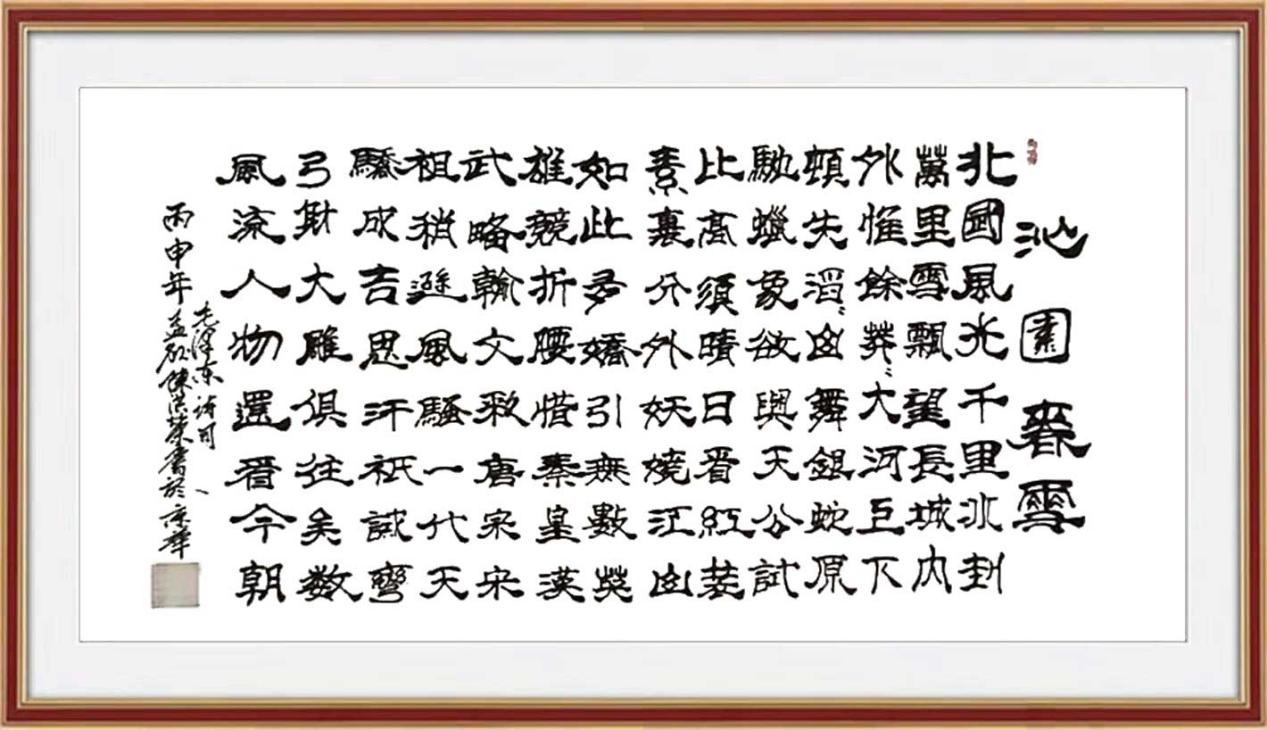 沁園春雪
北國風光千里冰封
萬里雪飄望長城內
外惟餘莽〻大河上下
頓失滔〻山舞銀蛇原
馳蠟象欲與天公試
比高須晴日看紅裝
素裹分外妖嬈江山
如此多嬌引無數英
雄競折腰惜秦皇漢
武略輸文采唐宗宋
祖稍遜風騷一代天
驕成吉思汗祇識彎
弓射大雕俱往矣数
風流人物還看今朝
毛澤東詩詞
丙申年孟秋陳洪榮書於京華